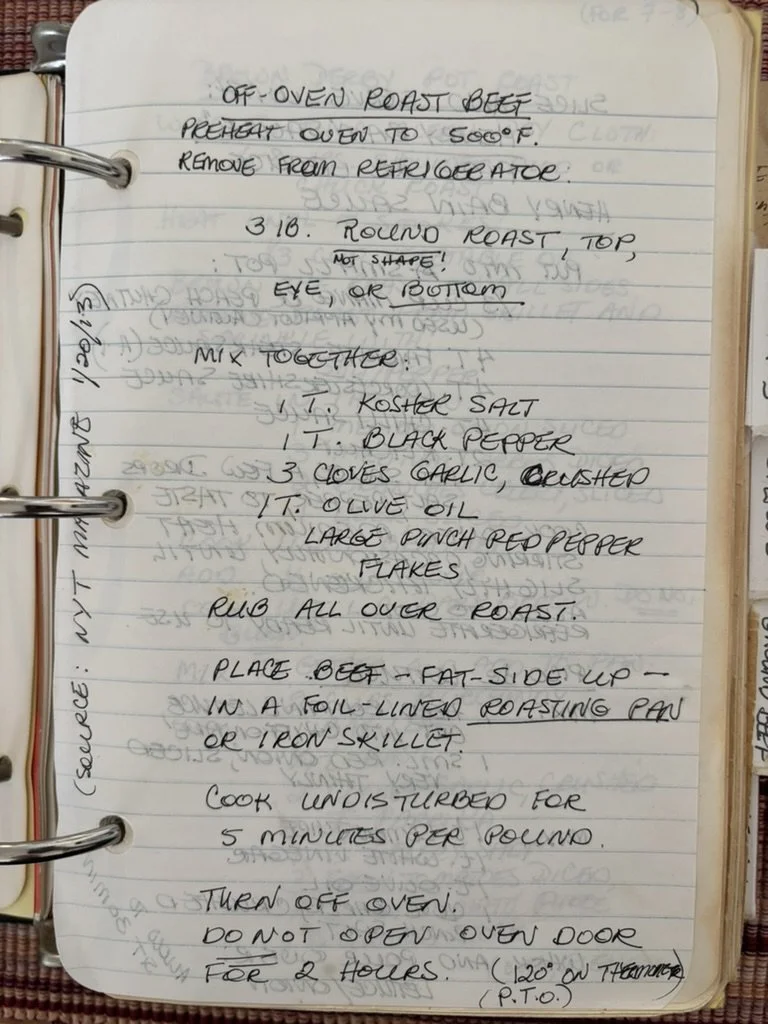 (FOR 7-8)
OFF-OVEN ROAST BEEF
PREHEAT OVEN TO 500°F.
REMOVE FROM REFRIGERATOR:
3 lB. ROUND ROAST, TOP,
NOT SHAPE!
EYE, OR BOTTOM
MIX TOGETHER:
1 T. KOSHER SALT
1 T. BLACK PEPPER
3 CLOVES GARLIC, CRUSHED
1 T. OLIVE OIL
LARGE PINCH RED PEPPER
FLAKES
RUB ALL OVER ROAST.
PLACE BEEF - FAT-SIDE UP -
IN A FOIL-LINED ROASTING PAN
OR IRON SKILLET.
COOK UNDISTURBED FOR
5 MINUTES PER POUND.
TURN OFF OVEN.
DO NOT OPEN OVEN DOOR
FOR 2 HOURS. (120° ON THERMOMETER)
(P.T.O.)
(SOURCE: NYT MAGAZINE 1/20/13)